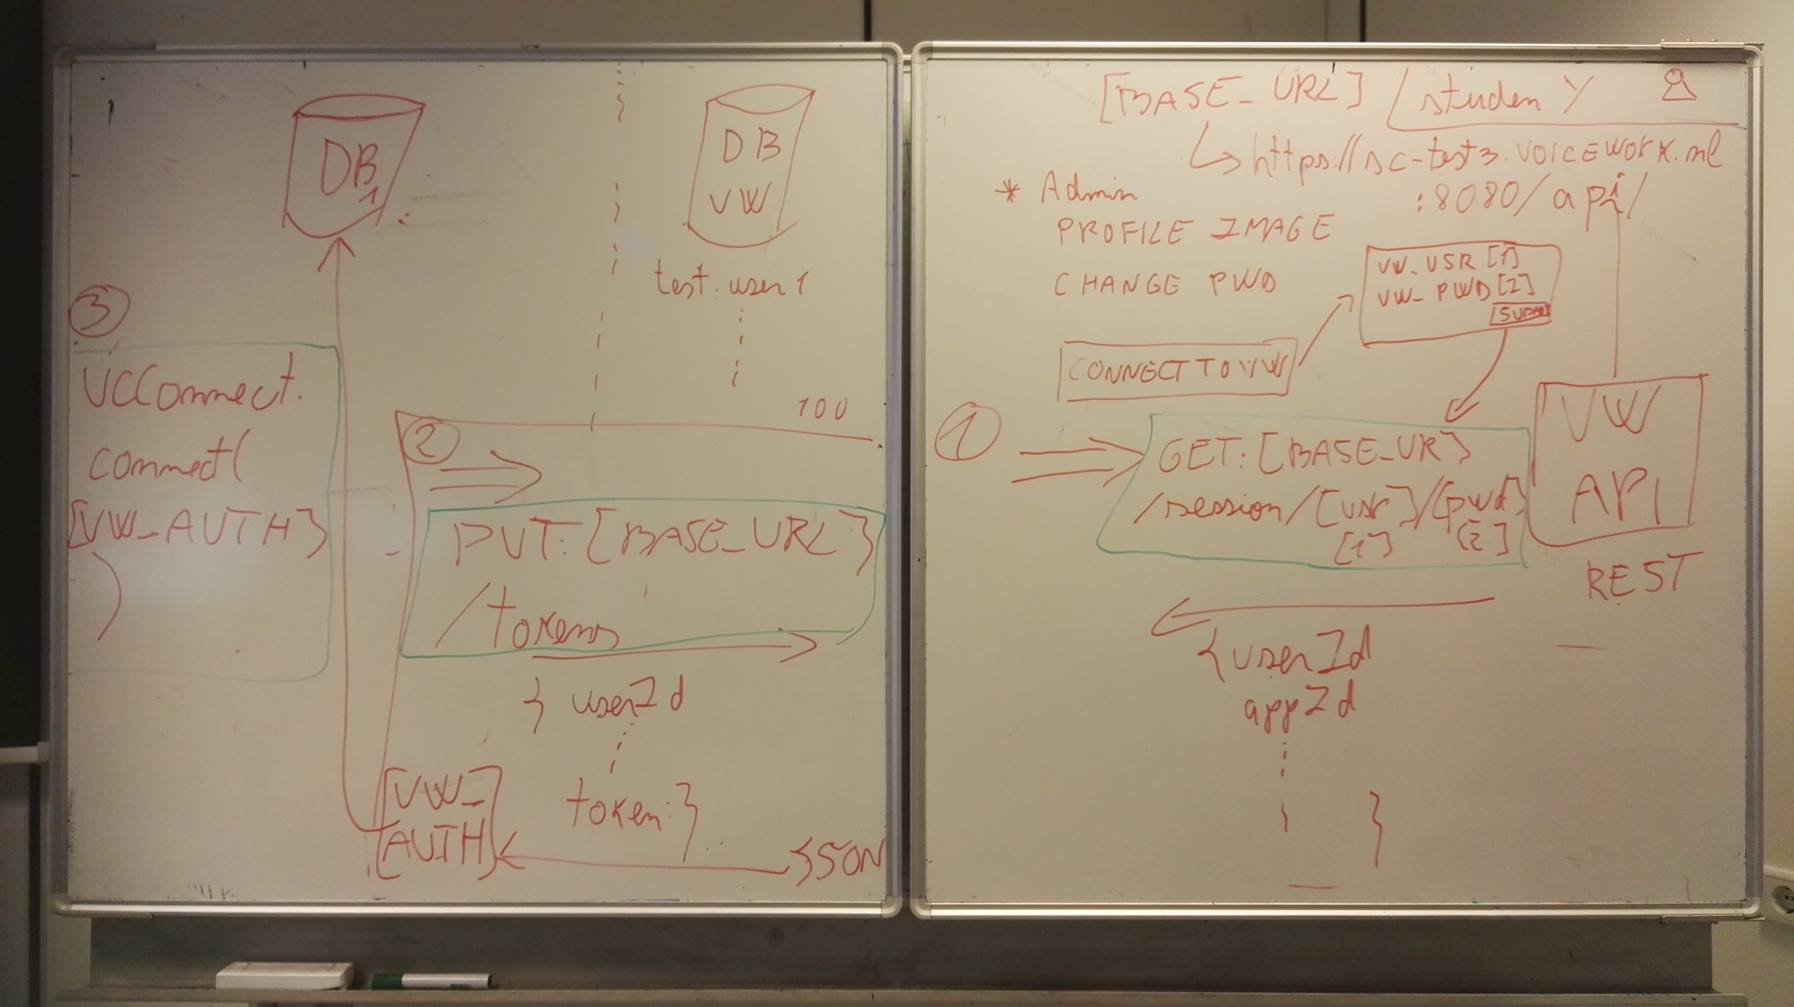 DB
1
DB
VW
test.user1
100
3
VCConnect.
connect(
[VW_AUTH]
)
2
PUT: [BASE_URL]
/tokens
{ userId
token: }
[VW_
AUTH]
JSON
[BASE_URL] /studen
https://sc-test3.voicework.nl
:8080/api/
* Admin
PROFILE IMAGE
CHANGE PWD
VW_USR [1]
VW_PWD [2]
CONNECT TO VW
1
GET: [BASE_UR]
/session/[usr]/[pwd]
[1] [2]
VW
API
REST
{ userId
appId
}